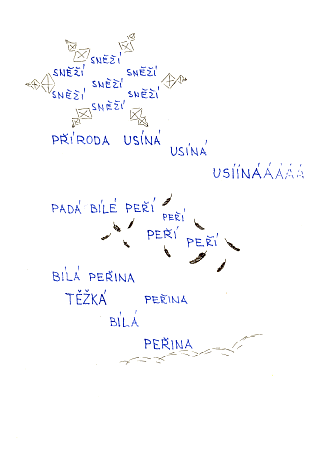 SNĚŽÍ
SNĚŽÍ SNĚŽÍ
SNĚŽÍ
SNĚŽÍ SNĚŽÍ
SNĚŽÍ
PŘÍRODA USÍNÁ
USÍNÁ
USÍÍNÁÁÁÁÁ
PADÁ BÍLÉ PEŘÍ
PEŘÍ
PEŘÍ
PEŘÍ
BÍLÁ PEŘINA
TĚŽKÁ PEŘINA
BÍLÁ
PEŘINA